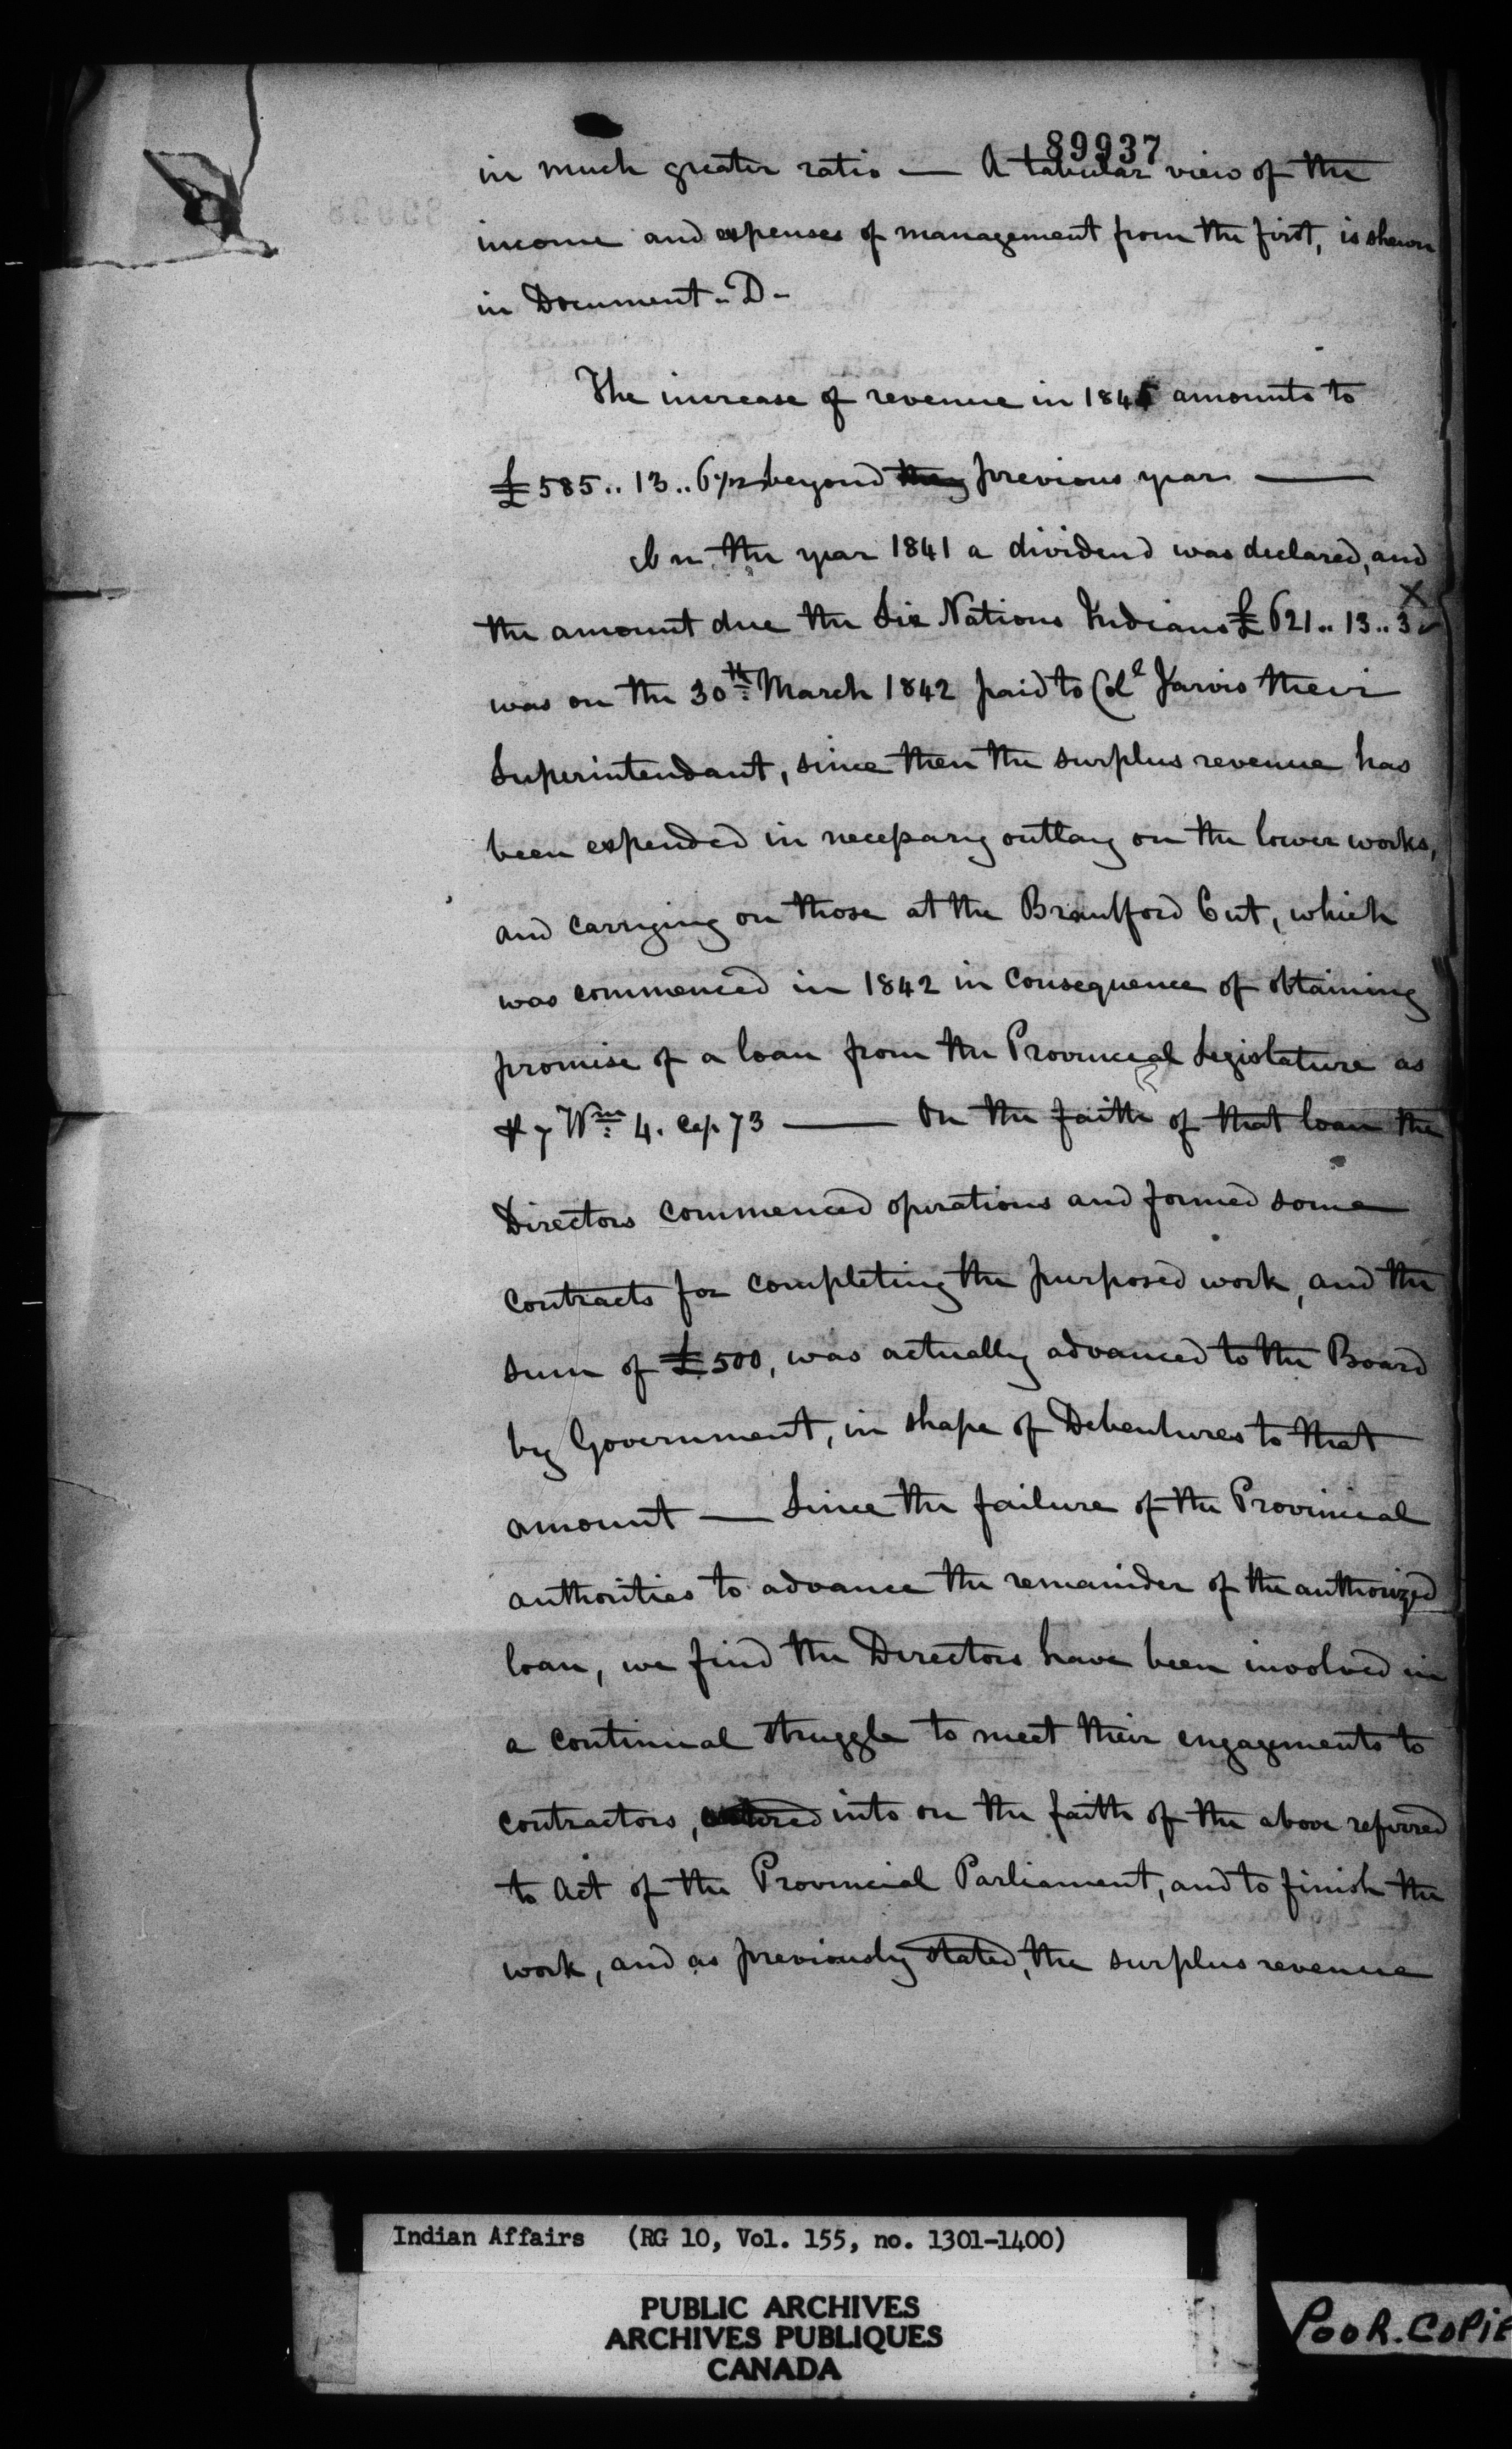 89937
in much greater ratio — A tabular view of the
income and expenses of management from the first, is shewn
in Document - D -
The increase of revenue in 1845 amounts to
£585.. 13.. 6 1/2 beyond previous year —
In the year 1841 a dividend was declared, and
the amount due the Six Nations Indians £621.. 13.. 3 X
was on the 30th March 1842 paid to Col Jarvis their
Superintendant, since then the surplus revenue has
been expended in necessary outlay on the lower works,
and carrying on those at the Brantford Cut, which
was commenced in 1842 in consequence of obtaining
promise of a loan from the Provincial Legislature as
7 Wm 4. Cap 73 — On the faith of that loan the
Directors commenced operations and formed some
contracts for completing the purposed work, and the
sum of £500, was actually advanced to the Board
by Government, in shape of Debentures to that
amount — Since the failure of the Provincial
authorities to advance the remainder of the authorized
loan, we find the Directors have been involved in
a continual struggle to meet their engagements to
contractors, entered into on the faith of the above referred
to Act of the Provincial Parliament, and to finish the
work, and as previously stated, the surplus revenue
Indian Affairs (RG 10, Vol. 155, no. 1301-1400)
PUBLIC ARCHIVES
ARCHIVES PUBLIQUES
CANADA
POOR.COPIE